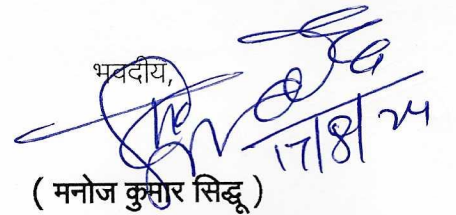 भवदीय,
17/8/24
( मनोज कुमार सिद्धू )